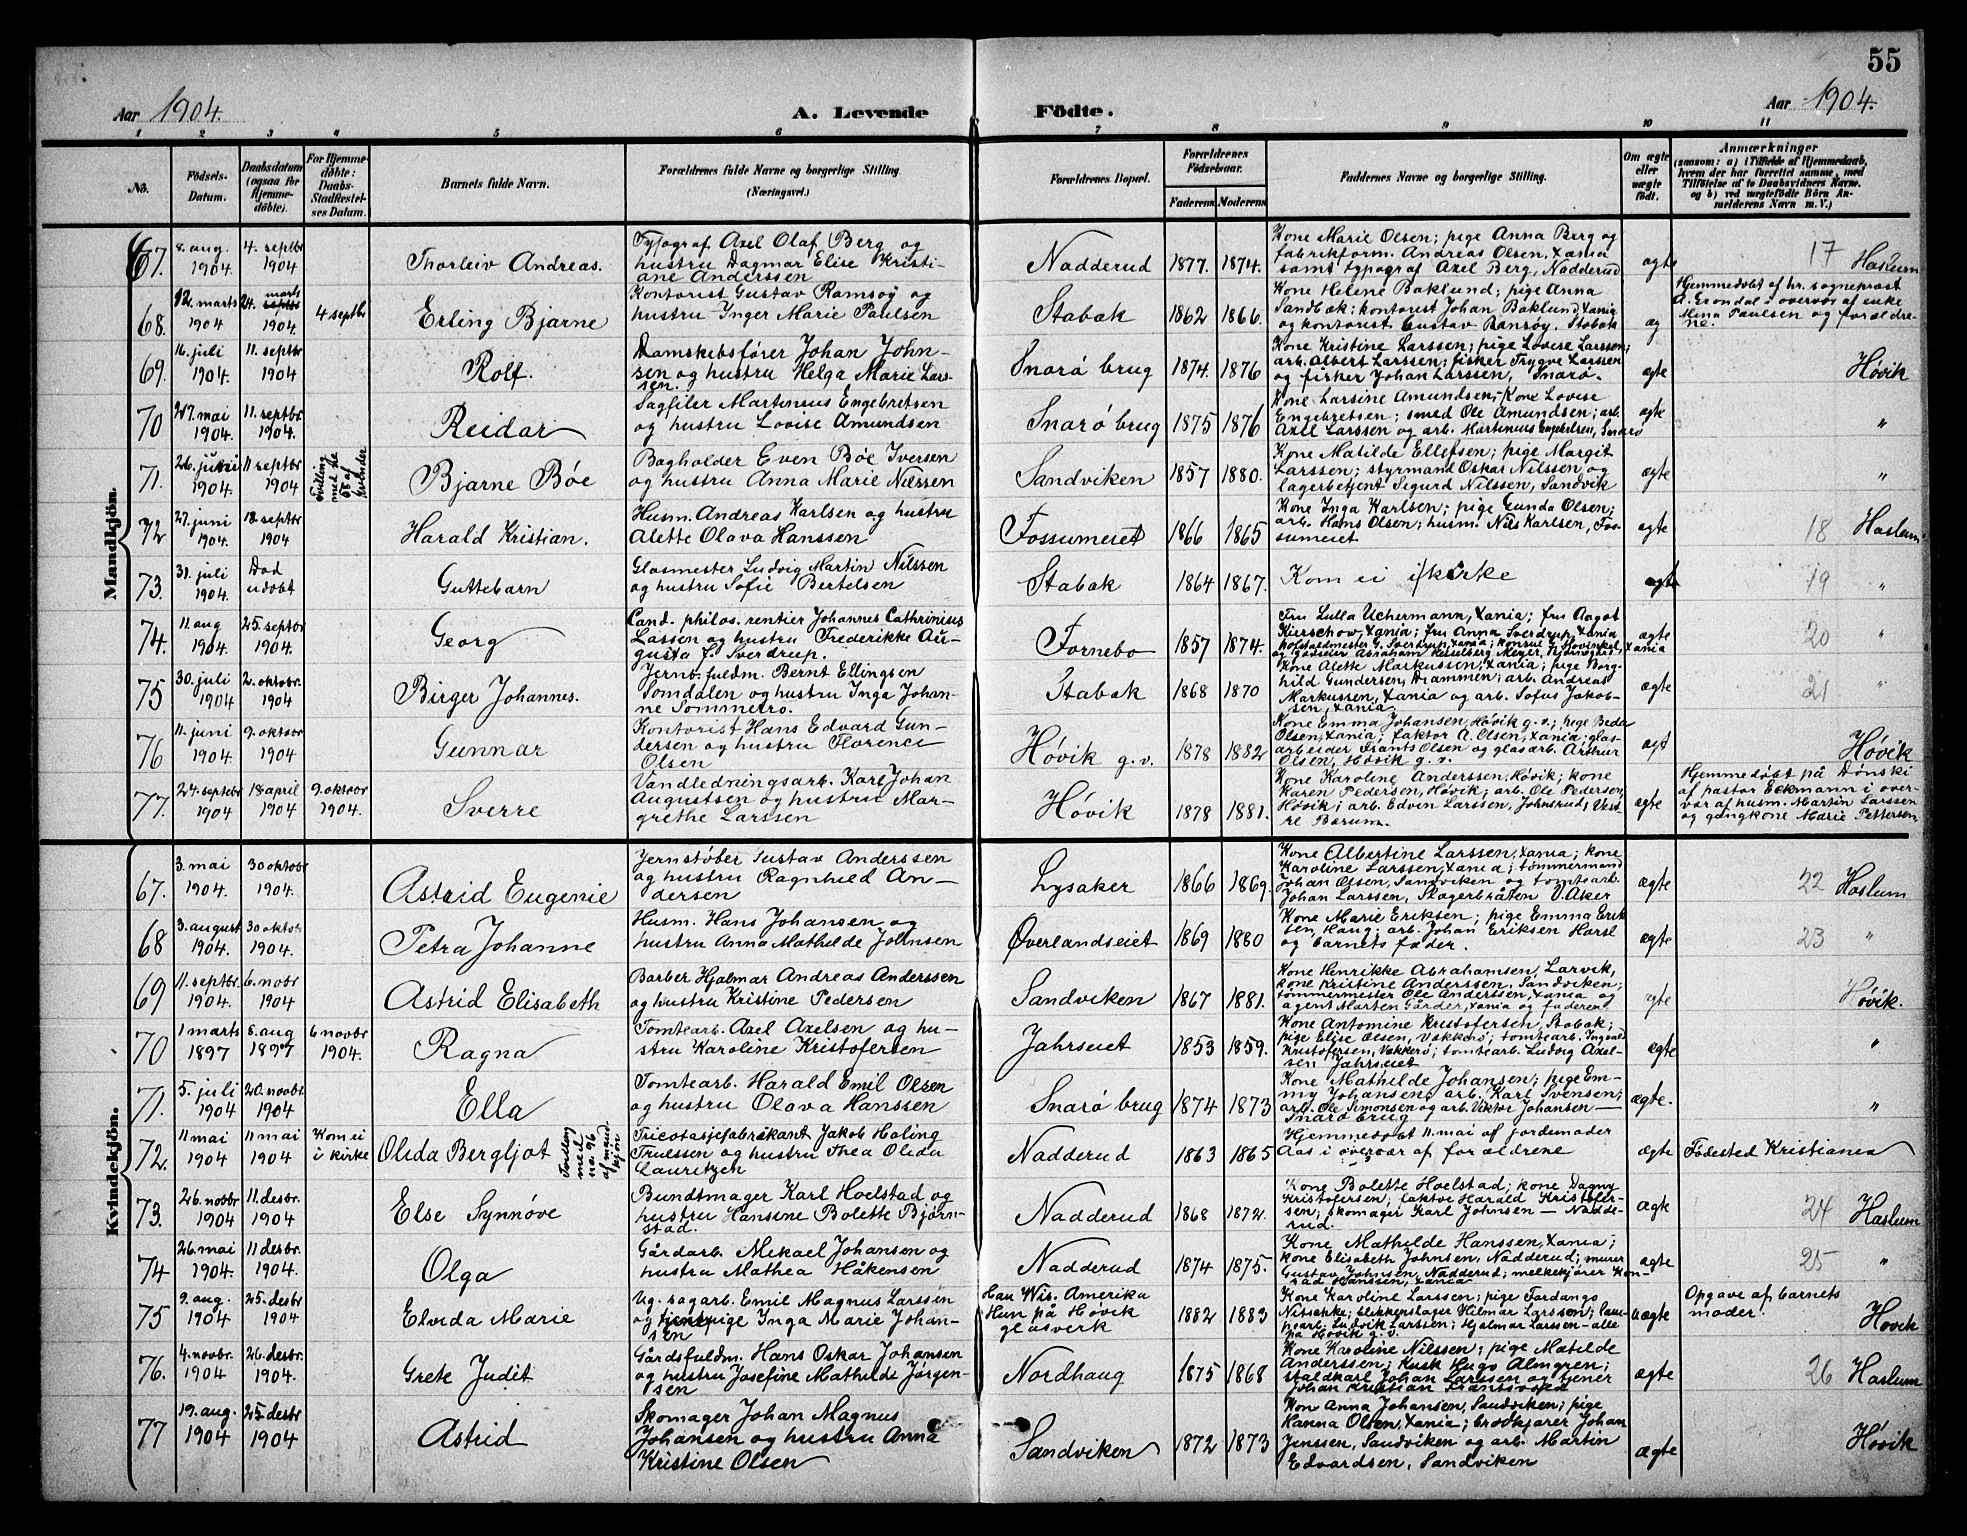 55
Aar 1904.
A. Levende Födte.
Aar 1904.
1 2 3 4 5 6 7 8 9 10 11
No.
Födsels-Datum.
Daabsdatum (ogsaa for Hjemmedöbte).
For Hjemmedöbte: Daabs-Stadfæstelses Datum.
Barnets fulde Navn.
Forældrenes fulde Navne og borgerlige Stilling (Næringsvei.)
Forældrenes Bopæl.
Forældrenes Födselsaar.
Faderens. Moderens.
Faddernes Navne og borgerlige Stilling.
Om ægte eller uægte födt.
Anmærkninger
(saasom: a) i Tilfælde af Hjemmedaab,
hvem der har forrettet samme, med
Tilföielse af to Daabsvidners Navne,
og b) ved uægtefödte Börn An-
melderens Navn m. V.)
Mandkjön.
67. 8. aug. 1904 4. septbr 1904 Thorleiv Andreas.
Typograf Axel Olaf Berg og
hustru Dagmar Elise Kristi-
ane Anderssen
Nadderud 1877. 1874.
Kone Marie Olsen; pige Anna Berg og
fabrikform. Andreas Olsen, Xania
samt typograf Axel Berg, Nadderud
ægte 17 Haslum
68. 12. marts 1904 24. marts 1904 4 septbr Erling Bjarne
Kontorist Gustav Ramsøy og
hustru Inger Marie Paulsen
Stabæk 1862 1866.
Kone Helene Baklund; pige Anna
Sandbæk; kontorist Johan Baklund, Xania
og kontorist Gustav Ramsøy, Stabæk
æg
Hjemmedøbt af hr. sogneprest
A. Grøndal i overvær af enke
Mina Paulsen og forældre-
ne.
69. 16. juli 1904. 11. septbr 1904 Rolf.
Damskibsfører Johan John-
sen og hustru Helga Marie Lars-
sen.
Snarø brug 1874. 1876
Kone Kristine Larssen; pige Lovise Larssen;
arb. Albert Larssen; fisker Trygve Larssen
og fisker Johan Larssen, Snarø.
ægte Høvik
70 27. mai 1904. 11. septbr. 1904. Reidar
Sagfiler Martinius Engebretsen
og hustru Lovise Amundsen
Snarø brug 1875 1876
Kone Larsine Amundsen; Kone Lovise
Engebretsen; smed Ole Amundsen; arb.
Axel Larssen og arb. Martinius Engebretsen, Snarø
ægte "
71. 26. juni 1904. 11 septbr 1904. Tvilling med no 68 af kvinder Bjarne Bøe
Bagholder Even Bøe Iversen
og hustru Anna Marie Nilssen
Sandviken 1857 1880.
Kone Matilde Ellefsen; pige Margit
Larssen; styrmand Oskar Nilssen og
lagerbetjent Sigurd Nilssen, Sandvik
ægte "
72 27. juni 1904. 18. septbr 1904 Harald Kristian.
Husm. Andreas Karlsen og hustru
Alette Olava Hanssen
Fossumeiet 1866 1865
Kone Inga Karlsen; pige Gunda Olsen;
arb. Hans Olsen; husm. Nils Karlsen, Fos-
sumeiet
ægte 18 Haslum.
73. 31. juli 1904. Død udøbt Guttebarn
Glasmester Ludvig Martin Nilssen
og hustru Sofie Bertelsen
Stabæk 1864 1867.
Kom ei i kirke
ægte 19 "
74. 11. aug 1904. 25. septbr 1904. Georg
Cand. philos. rentier Johannes Cathrinius
Lassen og hustru Frederikke Au-
gusta f. Sverdrup.
Fornebo 1857 1874.
Fru Lulla Uchermann, Xania; fru Aagot
Kierschow, Xania; fru Anna Sverdrup, Xania
hofstaldmester G. Sverdrup, Xania; konsul H. Hovinkel, Xania
og godseier Abraham Kieselberg Meyer,
ægte 20 "
75 30. juli 1904 2. oktobr. 1904. Birger Johannes.
Jernb. fuldm. Bernt Ellingsen
Somdalen og hustru Inga Johan-
ne Sommerro.
Stabæk 1868 1870
Kone Alette Markussen, Xania; pige Borg-
hild Gundersen, Drammen; arb. Andreas
Markussen, Xania og arb. Sofus Jakob-
sen, Xania
ægte 21 "
76 11. juni 1904 9. oktobr 1904 Gunnar
Kontorist Hans Edvard Gun-
dersen og hustru Florence
Olsen
Høvik g.v. 1878 1882
Kone Emma Johansen, Høvik g.v.; pige Beda
Olsen, Xania; faktor A. Olsen, Xania; glas-
arbeider Frants Olsen og glasarb. Arthur
Olsen, Høvik g.v.
ægt Høvik
77. 24. septbr 1904 18. april 1904 9. oktobr 1904. Sverre
Vandledningsarb. Karl Johan
Augustsen og hustru Mar-
grethe Larssen
Høvik 1878 1881.
Kone Karoline Anderssen, Høvik; kone
Karen Pedersen, Høvik; arb. Ole Pedersen,
Høvik; arb. Edvin Larssen, Johnsrud, Vest-
re Bærum.
ægte
Hjemmedøbt på Dønski
af pastor Eckmann i over-
vær af husm. Martin Larssen
og gangkone Marie Pettersen
Kvindekjön.
67. 3. mai 1904. 30 oktobr 1904. Astrid Eugenie
Jernstøber Gustav Anderssen
og hustru Ragnhild An-
dersen
Lysaker 1866 1869.
Kone Albertine Larssen, Xania; kone
Karoline Larssen, Xania; tømmermand
Johan Olsen, Sandviken og tomtearb.
Johan Larssen, Stagerbråten V. Aker
ægte 22 Haslum
68 3. august 1904. 30 oktobr 1904. Petra Johanne
Husm. Hans Johansen og
hustru Anna Mathilde Johnsen
Øverlandseiet 1869 1880
Kone Marie Eriksen; pige Emma Erik
sen, Haug; arb. Johan Eriksen Harsl
og barnets fader.
ægte 23 "
69 11. septbr. 1904. 6. novbr 1904 Astrid Elisabeth
Barber Hjalmar Andreas Anderssen
og hustru Kristine Pedersen
Sandviken 1867 1881.
Kone Henrikke Abrahamsen, Larvik,
kone Kristine Anderssen, Sandviken;
tømmermester Ole Anderssen, Xania og
agent Marten Gårder, Xania og faderen
ægte Høvik.
70 1 marts 1897 8. aug 1897 6 novbr 1904. Ragna
Tomtearb. Axel Axelsen og hu-
stru Karoline Kristofersen
Jahrseiet 1853 1859.
Kone Antomine Kristofersen, Stabæk;
pige Elise Olsen, Vækkerø; tomtearb. Ingvald
Kristofersen, Vækkerø; tomtearb. Ludvig Axel-
sen Jahrseiet
ægte "
71. 5. juli 1904 20. novbr 1904 Ella
Tomtearb. Harald Emil Olsen
og hustru Olava Hanssen
Snarø brug 1874 1873
Kone Mathilde Johansen; pige Em-
my Johansen; arb. Karl Svensen;
arb. Ole Simonsen og arb. Viktor Johansen —
Snarø brug
ægte. "
72. 11 mai 1904 11 mai 1904 Kom ei i kirke Olida Bergljot Tvilling med no. 96 af mandkjøn
Tricotasjefabrikant Jakob Holing
Truessen og hustru Thea Olida
Lauritzen
Nadderud 1863 1865
Hjemmedøbt 11. mai af jordemoder
Aas i overvær af forældrene
ægte Fødested Kristiania
73. 26. novbr 1904 11. desbr. 1904 Else Synnøve
Bundtmager Karl Hoelstad og
hustru Hansine Bolette Bjørn-
stad.
Nadderud 1868 1872.
Kone Bolette Hoelstad; kone Dagny
Kristofersen; faktor Harald Kristofer-
sen; skomager Karl Johnsen — Nadde-
rud.
ægte 24 Haslum
74 26. mai 1904. 11 desbr. 1904. Olga
Gårdarb. Mekael Johansen og
hustru Mathea Håkensen
Nadderud 1874 1875.
Kone Mathilde Hanssen, Xania;
kone Elisabeth Johnsen, Nadderud; murer
Gustav Johnsen, Nadderud; melkekjører Kon-
rad Hanssen, Xania
ægte 25 "
75 9. aug. 1904 25. desbr 1904 Elvida Marie
Ug. sagarb. Emil Magnus Larssen
og tjenestepige Inga Marie Johan-
sen
Han Wis. Amerika
Hun på Høvik
glasverk
1882 1883
Kone Karoline Larssen; pige Tordango
Nitschke; blikkenslager Hilmar Larssen;
Ludvik Larssen; Hjalmar Larssen — alle
på Høvik g.v.
uægte
Opgave af barnets
moder.
Høvik
76. 4. novbr. 1904 26. desbr. 1904. Grete Judit
Gårdsfuldm. Hans Oskar Johansen
og hustru Josefine Mathilde Jørgen-
sen
Nordhaug 1875 1868
Kone Karoline Nilssen; pige Matilde
Anderssen; Kusk Hugo Almgren;
staldkarl Johan Larssen og tjener
Johan Kristian
ægte 26 Haslum
77 19. aug. 1904 25. desbr 1904 Astrid
Skomager Johan Magnus
Johansen og hustru Anna
Kristine Olsen
Sandviken 1872 1873
Kon Anna Johansen, Sandviken; pige
Hanna Olsen, Xania; brødkjører Johan
Jenssen, Sandviken og arb. Martin
Edvardsen, Sandviken
ægte Høvik